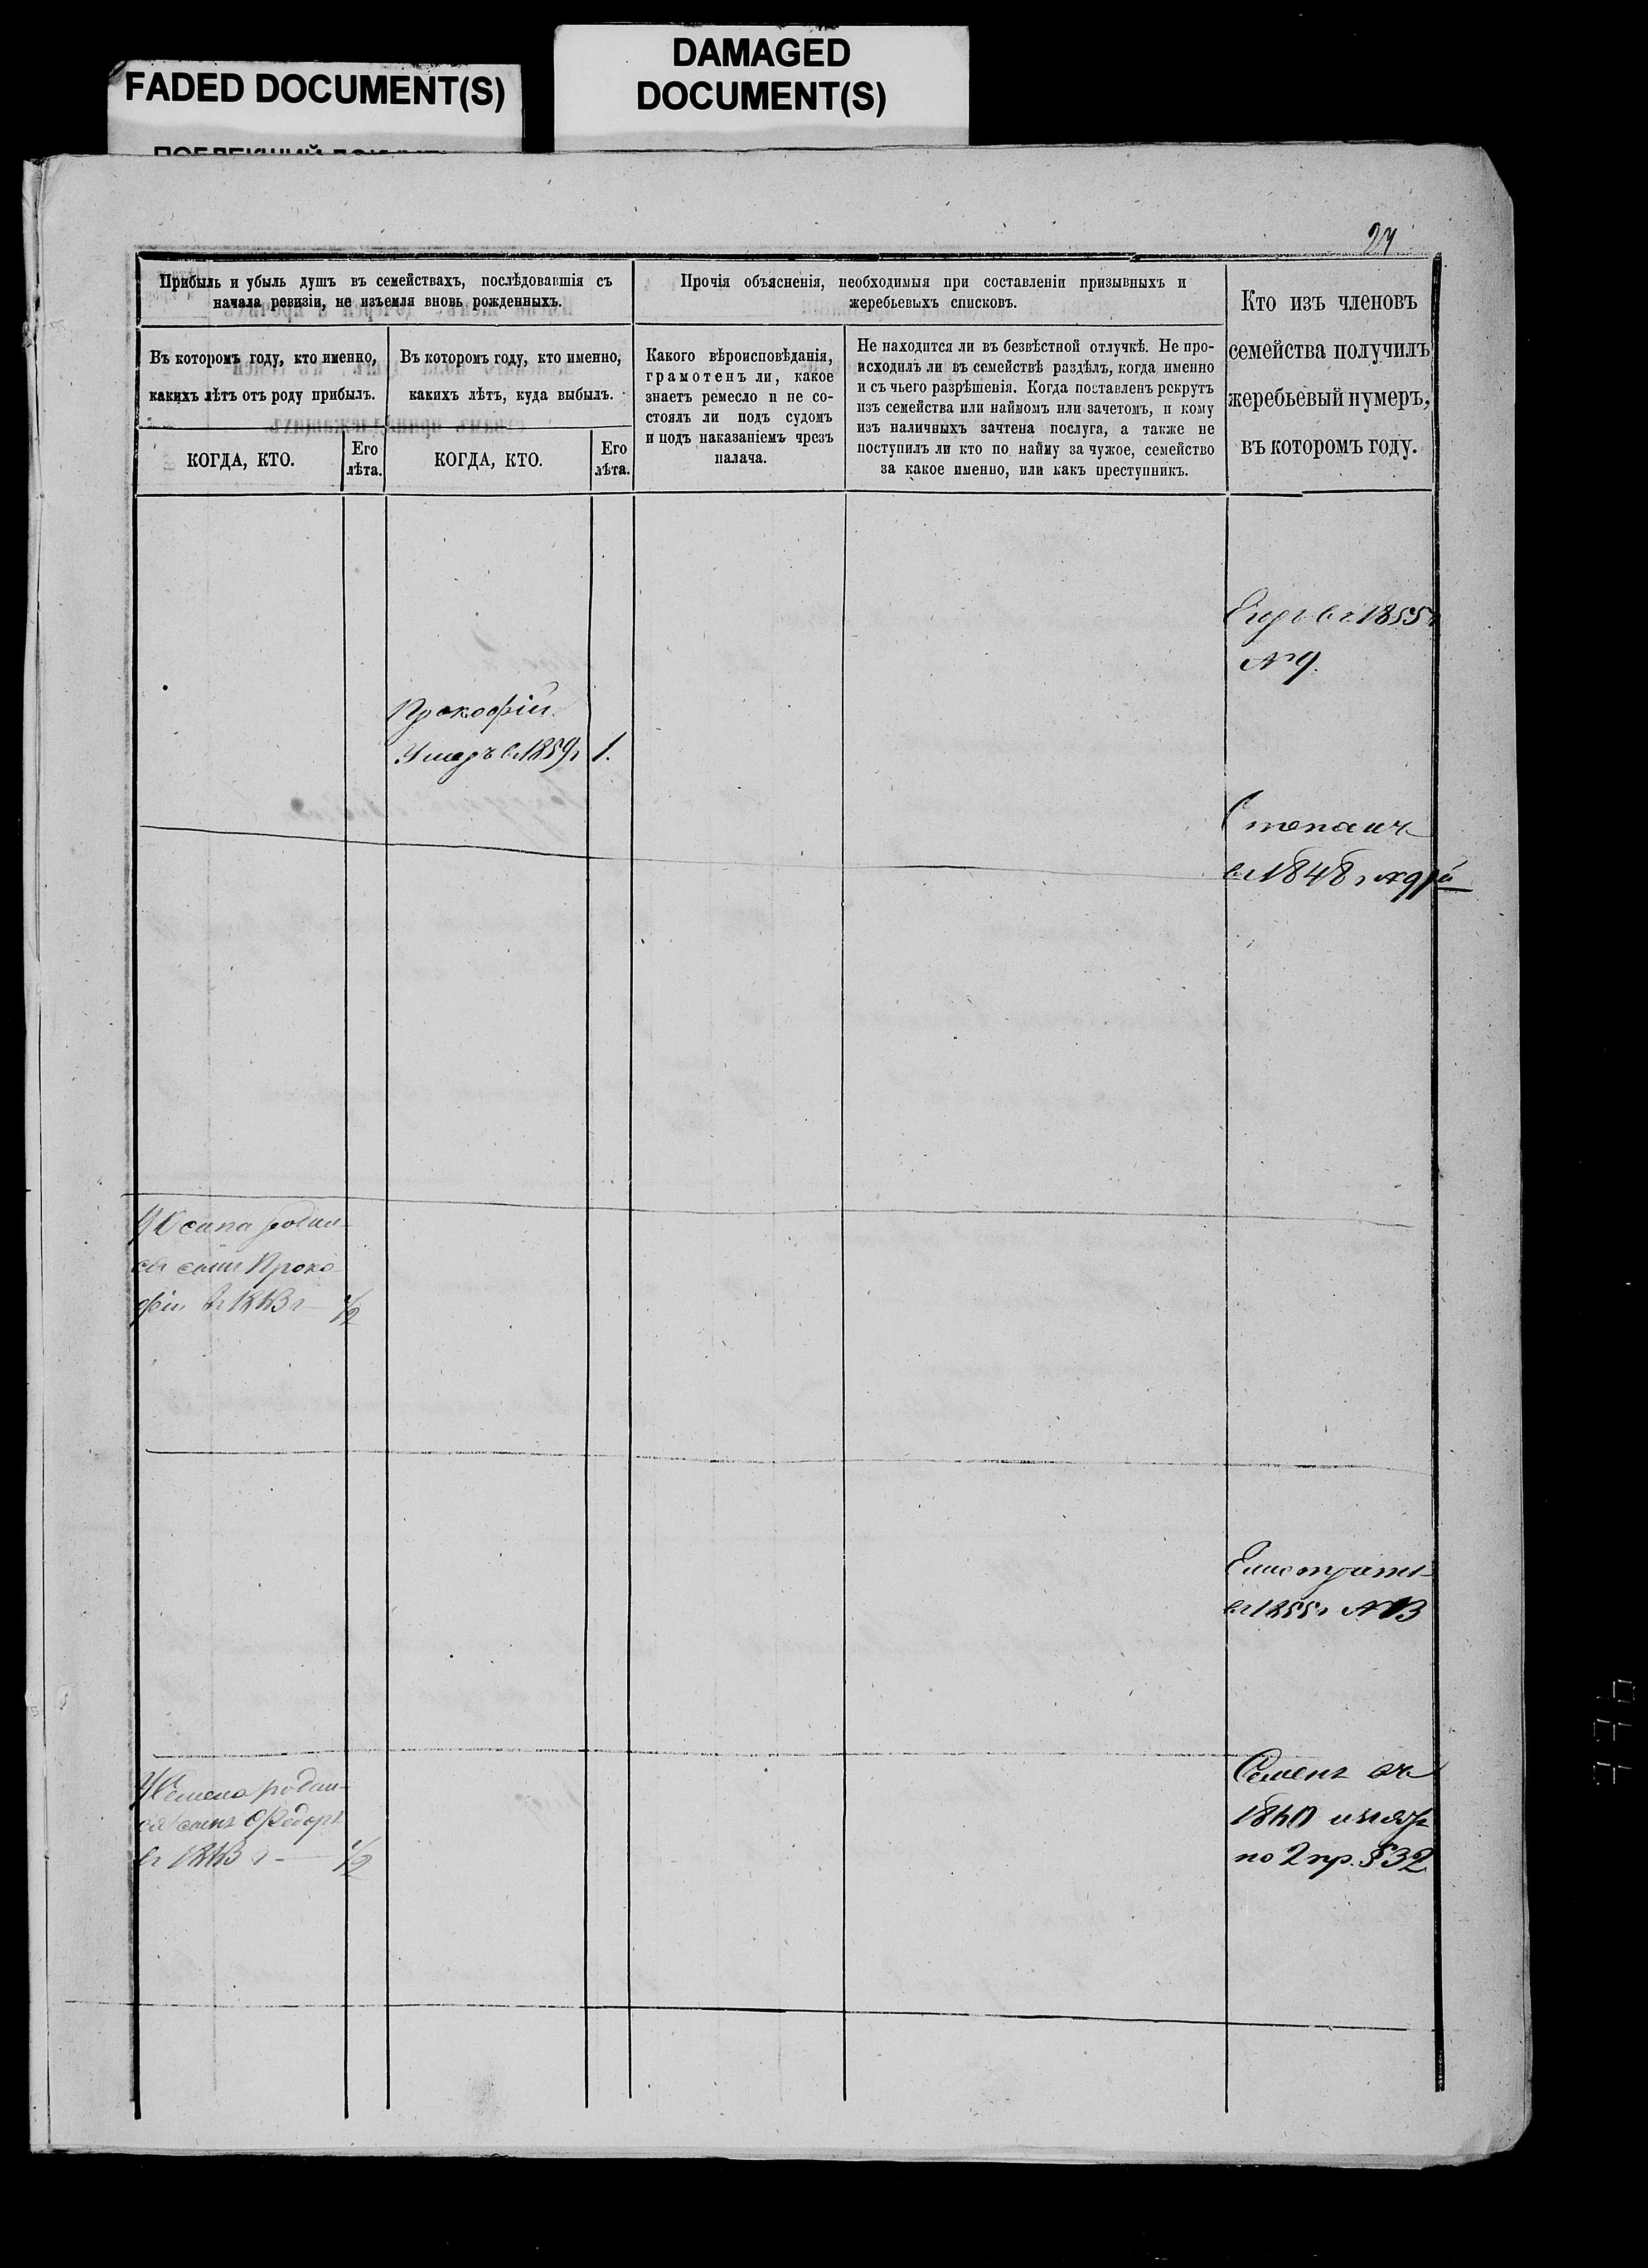 FADED DOCUMENT(S)
DAMAGED
DOCUMENT(S)
Прибыль и убыль душъ въ семействахъ, послѣдовавшія съ
начала ревизіи, не изъемля вновь рожденныхъ.
Прочія объясненія, необходимыя при составленіи призывныхъ и
жеребьевыхъ списковъ.
Кто изъ членовъ
семейства получилъ
жеребьевый нумеръ,
въ которомъ году.
Въ которомъ году, кто именно,
какихъ лѣтъ отъ роду прибылъ.
Въ которомъ году, кто именно,
какихъ лѣтъ, куда выбылъ.
Какого вѣроисповѣданія,
грамотенъ ли, какое
знаетъ ремесло и не со-
стоялъ ли подъ судомъ
и подъ наказаніемъ чрезъ
палача.
Не находится ли въ безвѣстной отлучкѣ. Не про-
исходилъ ли въ семействѣ раздѣлъ, когда именно
и съ чьего разрѣшенія. Когда поставленъ рекрутъ
изъ семейства или наймомъ или зачетомъ, и кому
изъ наличныхъ зачтена послуга, а также не
поступилъ ли кто по найму за чужое, семейство
за какое именно, или какъ преступникъ.
КОГДА, КТО.
Его
лѣта.
КОГДА, КТО.
Его
лѣта.
въ 1855г
№ 9.
Прокофій
Умеръ въ 1859г 1.
Степанъ
въ 1848г
У Осипа родил-
ся сынъ Проко
фій 1/2
въ 1855г №
У Семена родил-
ся сынъ Федоръ
1/2
Семенъ
по 2 пр. § 32